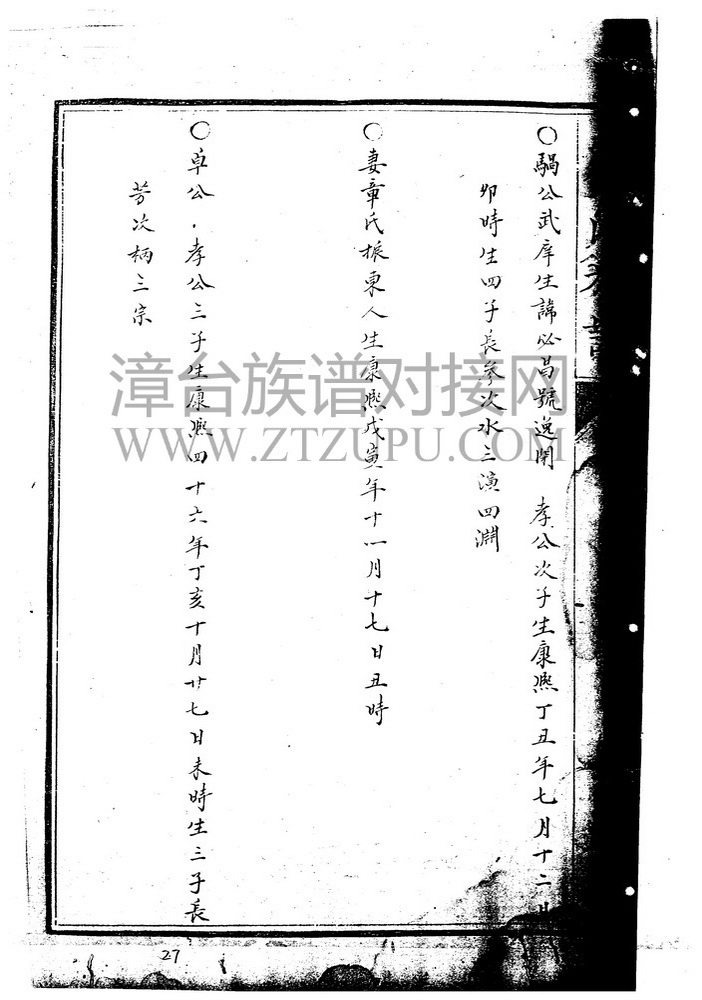 ○騧公武庠生諱必昌號逸閒 孝公次子生康熙丁丑年七月十二日
卯時生四子長參次水三演四淵
○妻章氏振東人生康熙戊寅年十一月十七日丑時
○卓公．孝公三子生康熙四十六年丁亥十月廿七日未時生三子長
芳次柄三宗
漳台族谱对接网
WWW.ZTZUPU.COM
27